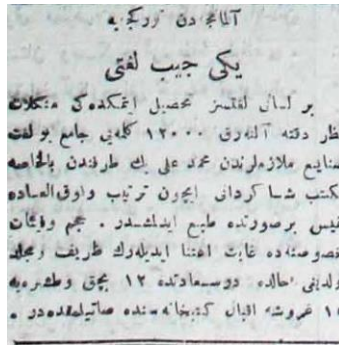 آلمانجه‌دن تورکجه‌یه
یکی جیب لغتی
بر لسانی لغتسز تحصیل ایتمکده‌کی مشکلات
نظر دقته آله‌رق ۱۲۰۰۰ کلمه‌یی جامع بو لغت
صنایع ملازملرندن محمد علی بك طرفندن بالخاصه
مکتب شاکردانی ایچون ترتیب و فوق العاده
نفیس بر صورتده طبع ایدلمشدر . حجم و
خصوصنه‌ده غایت اعتنا ایدیله‌رك ظریف و مجلد
اولدیغی حالده درسعادتده ۱۲ بچق و طشره‌یه
غروشه اقبال کتبخانه‌سنده صاتیلمقده‌در .